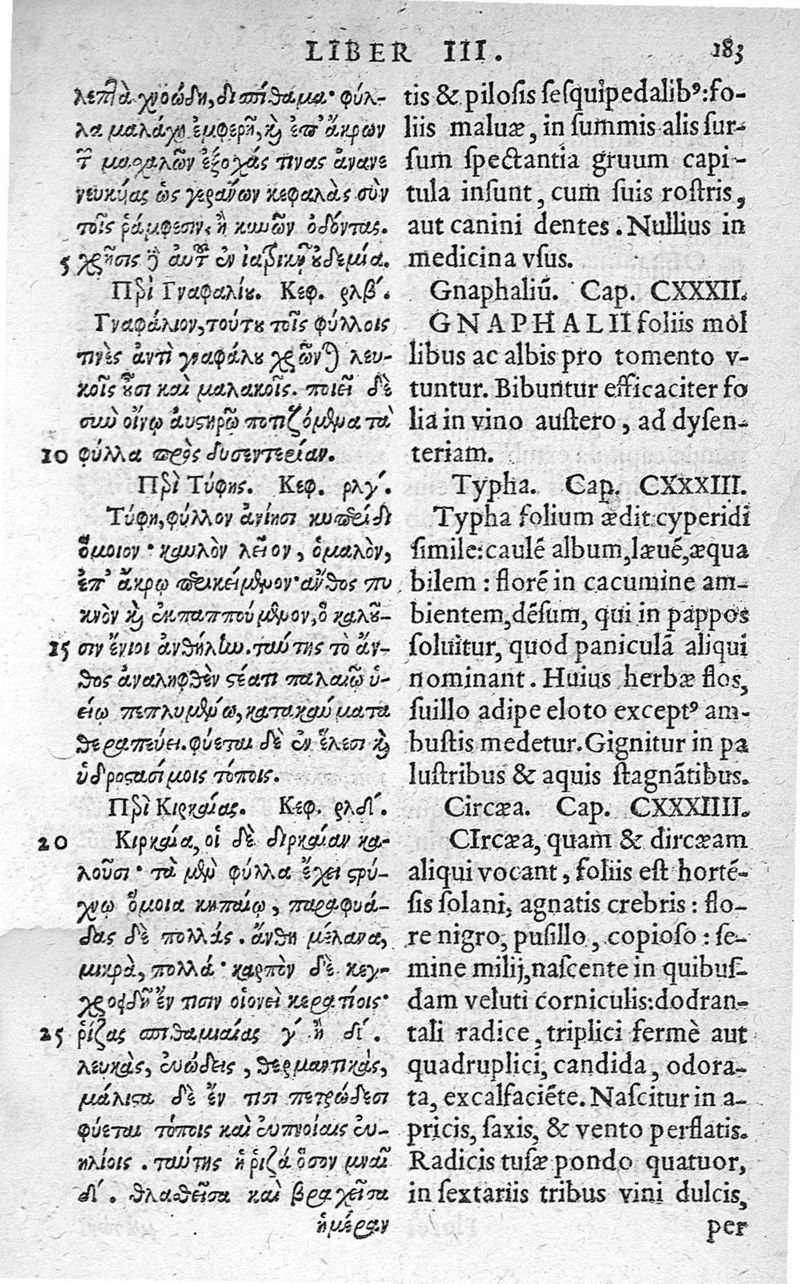 LIBER III. 183
λεπτὰ χνοώδη, δισπίθαμα· φύλ-
λα μαλάχῃ ἐμφερῆ, κὶ ἐπ' ἄκρων
τ͂ μαχαλῶν ἐξοχάς τινας ἀνανε
νευκύας ὡς γεράνων κεφαλὰς σὺν
τοῖς ῥάμφεσιν, ἢ κυνῶν ὀδόντας.
5 χρῆσις δ' αὐτ͂ ἐν ἰατρικῇ ȣ̓δεμία.
Περὶ Γναφαλίȣ. Κεφ. ρλβʹ.
Γναφάλιον, τούτȣ τοῖς φύλλοις
τινὲς ἀντὶ γναφάλȣ χρῶνται λευ-
κοῖς ȣ̓͂σι καὶ μαλακοῖς. ποιεῖ δὲ
σὺν οἴνῳ αὐστηρῷ ποτιζόμενα τὰ
10 φύλλα πρὸς δυσεντερίαν.
Περὶ Τύφης. Κεφ. ρλγʹ.
Τύφη, φύλλον ἀνίησι κυπειρίδι
ὅμοιον· καυλὸν λεῖον, ὁμαλὸν,
ἐπ' ἄκρῳ περικείμενον· ἄνθος πυ
κνὸν κὶ ἐκπαππούμενον, ὃ καλȣ͂-
15 σιν ἔνιοι ἀνθήλην. ταύτης τὸ ἄν-
θος ἀναληφθὲν στέατι παλαιῷ ὑ-
είῳ πεπλυμένῳ, κατακαύματα
θεραπεύει. φύεται δὲ ἐν ἕλεσι κὶ
ὑδροστασίμοις τόποις.
Περὶ Κιρκαίας. Κεφ. ρλδʹ.
20 Κιρκαία, οἱ δὲ διρκαίαν κα-
λοῦσι· τὰ μὲν φύλλα ἔχει στρύ-
χνῳ ὅμοια κηπαίῳ, παραφυά-
δας δὲ πολλάς. ἄνθη μέλανα,
μικρὰ, πολλά· καρπὸν δὲ κεγ-
χροειδῆ ἔν τισιν οἱονεὶ κερατίοις·
25 ῥίζας σπιθαμιαίας γʹ ἢ δʹ.
λευκὰς, εὐώδεις, θερμαντικὰς,
μάλιστα δὲ ἔν τισι πετρώδεσι
φύεται τόποις καὶ εὐπνοίαις εὐ-
ηλίοις. ταύτης ἡ ῥίζα ὅσον μναῖ
δʹ. θλασθεῖσα καὶ βραχεῖσα
ἡμέραν
tis & pilosis sesquipedalib⁹: fo-
liis maluæ, in summis alis sur-
sum spectantia gruum capi-
tula insunt, cum suis rostris,
aut canini dentes. Nullius in
medicina vsus.
Gnaphaliũ. Cap. CXXXII.
GNAPHALII foliis mol
libus ac albis pro tomento v-
tuntur. Bibuntur efficaciter fo
lia in vino austero, ad dysen-
teriam.
Typha. Cap. CXXXIII.
Typha folium ædit cyperidi
simile: caulẽ album, læuẽ, æqua
bilem: florẽ in cacumine am-
bientem, dẽsum, qui in pappos
soluitur, quod paniculã aliqui
nominant. Huius herbæ flos,
suillo adipe eloto except⁹ am-
bustis medetur. Gignitur in pa
lustribus & aquis stagnãtibus.
Circæa. Cap. CXXXIIII.
CIrcæa, quam & dircæam
aliqui vocant, foliis est hortẽ-
sis solani, agnatis crebris: flo-
re nigro, pusillo, copioso: se-
mine milij, nascente in quibus-
dam veluti corniculis: dodran-
tali radice, triplici fermè aut
quadruplici, candida, odora-
ta, excalfaciẽte. Nascitur in a-
pricis, saxis, & vento perflatis.
Radicis tusæ pondo quatuor,
in sextariis tribus vini dulcis,
per